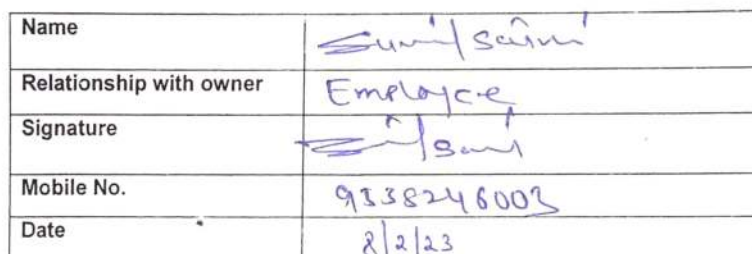 Name Sunil Saini
Relationship with owner Employee
Signature
Mobile No. 9338246003
Date 8/2/23